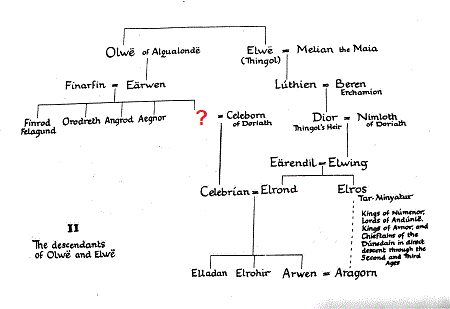 Olwë of Alqualondë
Elwë = Melian the Maia
(Thingol)
Finarfin = Eärwen
Lúthien = Beren
Erchamion
Finrod
Felagund
Orodreth Angrod Aegnor
? = Celeborn
of Doriath
Dior = Nimloth
Thingol's Heir
of Doriath
Eärendil = Elwing
Celebrían = Elrond
Elros
Tar-Minyatur
Kings of Númenor,
Lords of Andúnië,
Kings of Arnor, and
Chieftains of the
Dúnedain in direct
descent through the
Second and Third
Ages
II
The descendants
of Olwë and Elwë
Elladan Elrohir Arwen = Aragorn